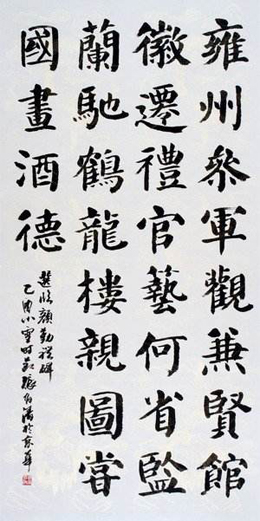 雍州叅軍觀兼賢館
徽遷禮官藝何省監
蘭馳鶴龍樓親圖嘗
國畫酒德
選臨顏勤禮碑
乙酉小雪時於京華